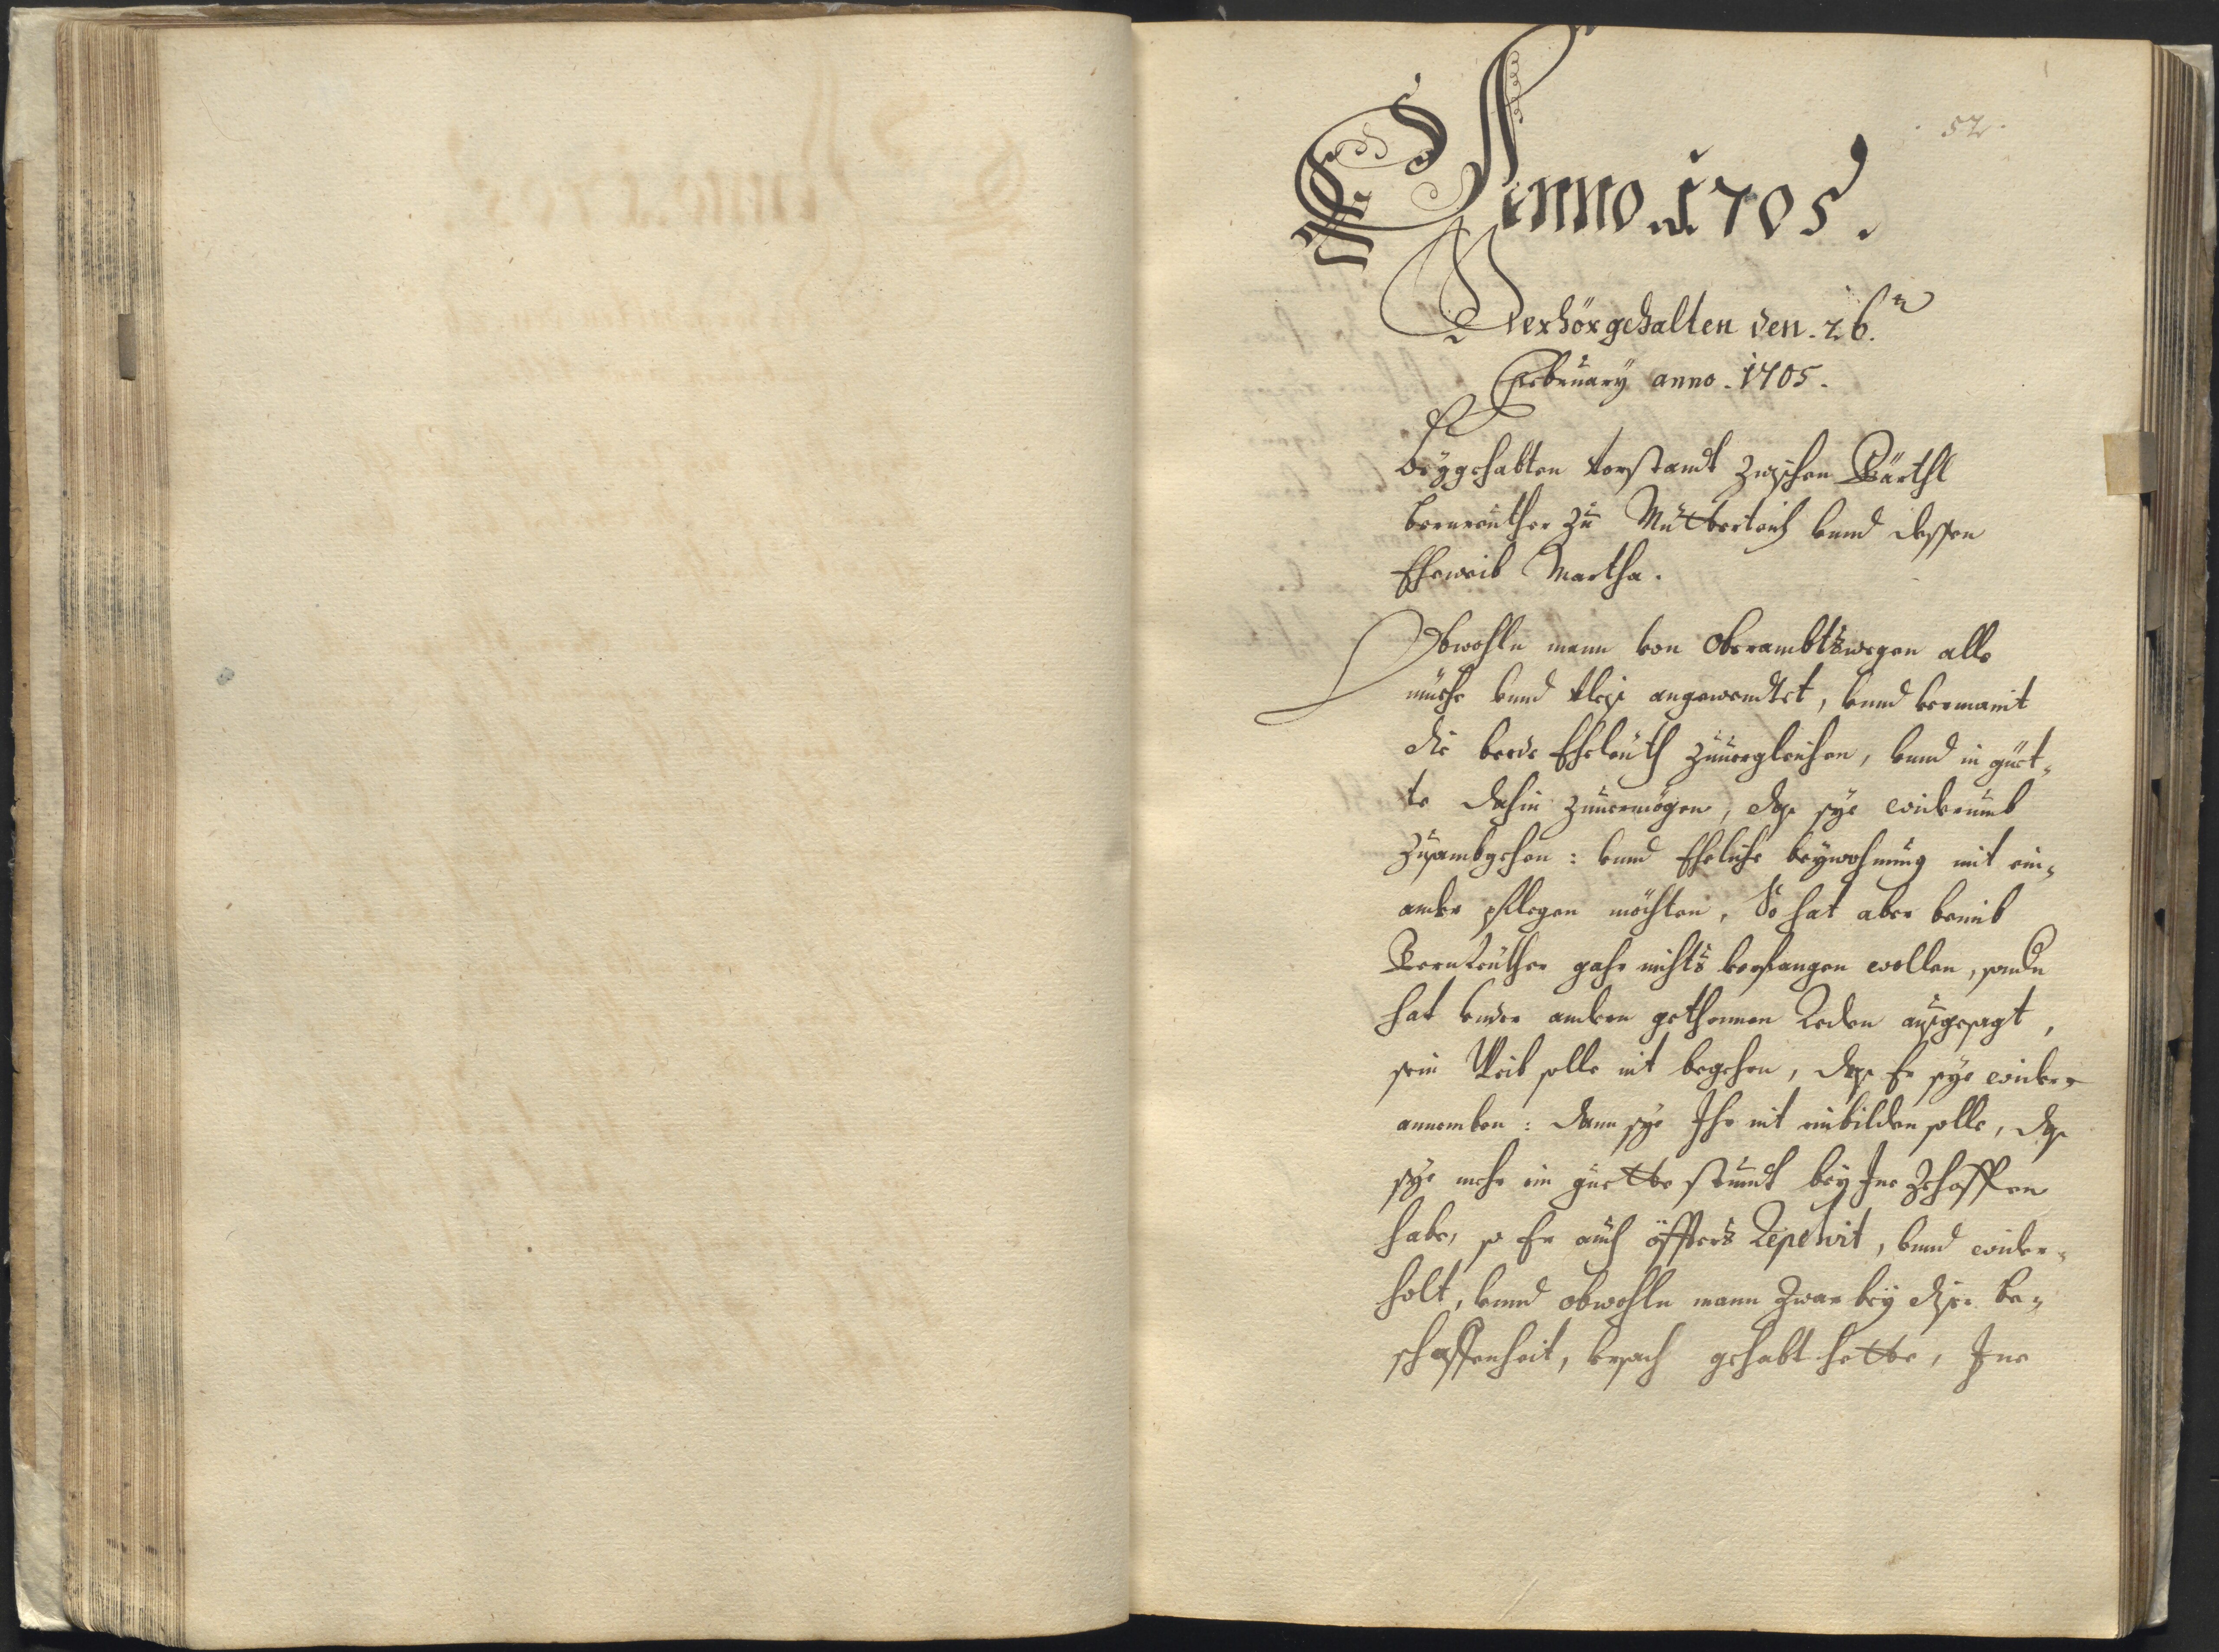 52.
Anno. 1705.
Verhör gehalten den. 26.n
February anno. 1705.
beygehabten Vorstandt zwischen Bärthl
bernreuther zu Mütterteich vnnd dessen
Eheweib Martha.
Obwohln mann von Oberambtswegen alle
müehe vnnd vleiß angewendtet, vnnd vermaint
die beede Eheleuth zuuergleichen, vnnd in güet„
te dahin zuuermögen, daß sye widerumb
zusambgehen: vnnd Eheliche beywohnung mit ein„
ander pflegen möchten, So hat aber bemelt
Bernreuther gahr nichts verfangen wollen, sondn
hat vnder andern gethonnen Reden außgesagt,
sein Weib solle nit begehrn, daß Er sye wider
annemben: dann sye Ihr nit einbilden solle, daß
sye mehr ein guette stundt bey Ime zehoffen
habe, so Er auch öffters Repetirt, vnnd wider„
holt, vnnd obwohln mann zwar bey diser be„
schaffenheit, vrsach gehabt hette, Ime